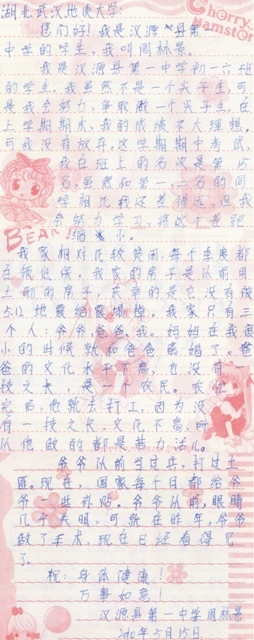 湖北武汉地质大学:
您们好!我是汉源县第一
中学的学生,我叫周林景。
我是汉源县第一中学初一六班
的学生,我虽然不是一个尖子生,可
是我会努力,争取做一个尖子生,在
上学期期末,我的成绩不大理想,
可我没有放弃,这学期期中考试,
我在班上的名次是第
名,虽然和第一、二名的同
学相比我还差得远,但我
会努力学习,将这个差距
缩小。
我家相对比较贫困,每个季度都
在领低保。我家的房子是以前用
土砌的房子,庆幸的是它没有被
5.12地震给震垮掉。我家只有三
个人:爷爷、爸爸、我。妈妈在我很
小的时候就和爸爸离婚了。爸
爸的文化水平不高,也没有一
技之长,是一个农民。农忙
完后,他就去打工,因为没
有一技之长,文化不高,所
以他做的都是苦力活儿。
爷爷以前当过兵,打过土
匪。现在,国家每个月都给爷
爷一些补贴。爷爷以前,眼睛
几乎失明,可就在昨年,爷爷
做了手术,现在已经看得见
了。
祝:身体健康!
万事如意!
汉源县第一中学周林景
2010年5月15日
Cherry
Hamster
BEAR!